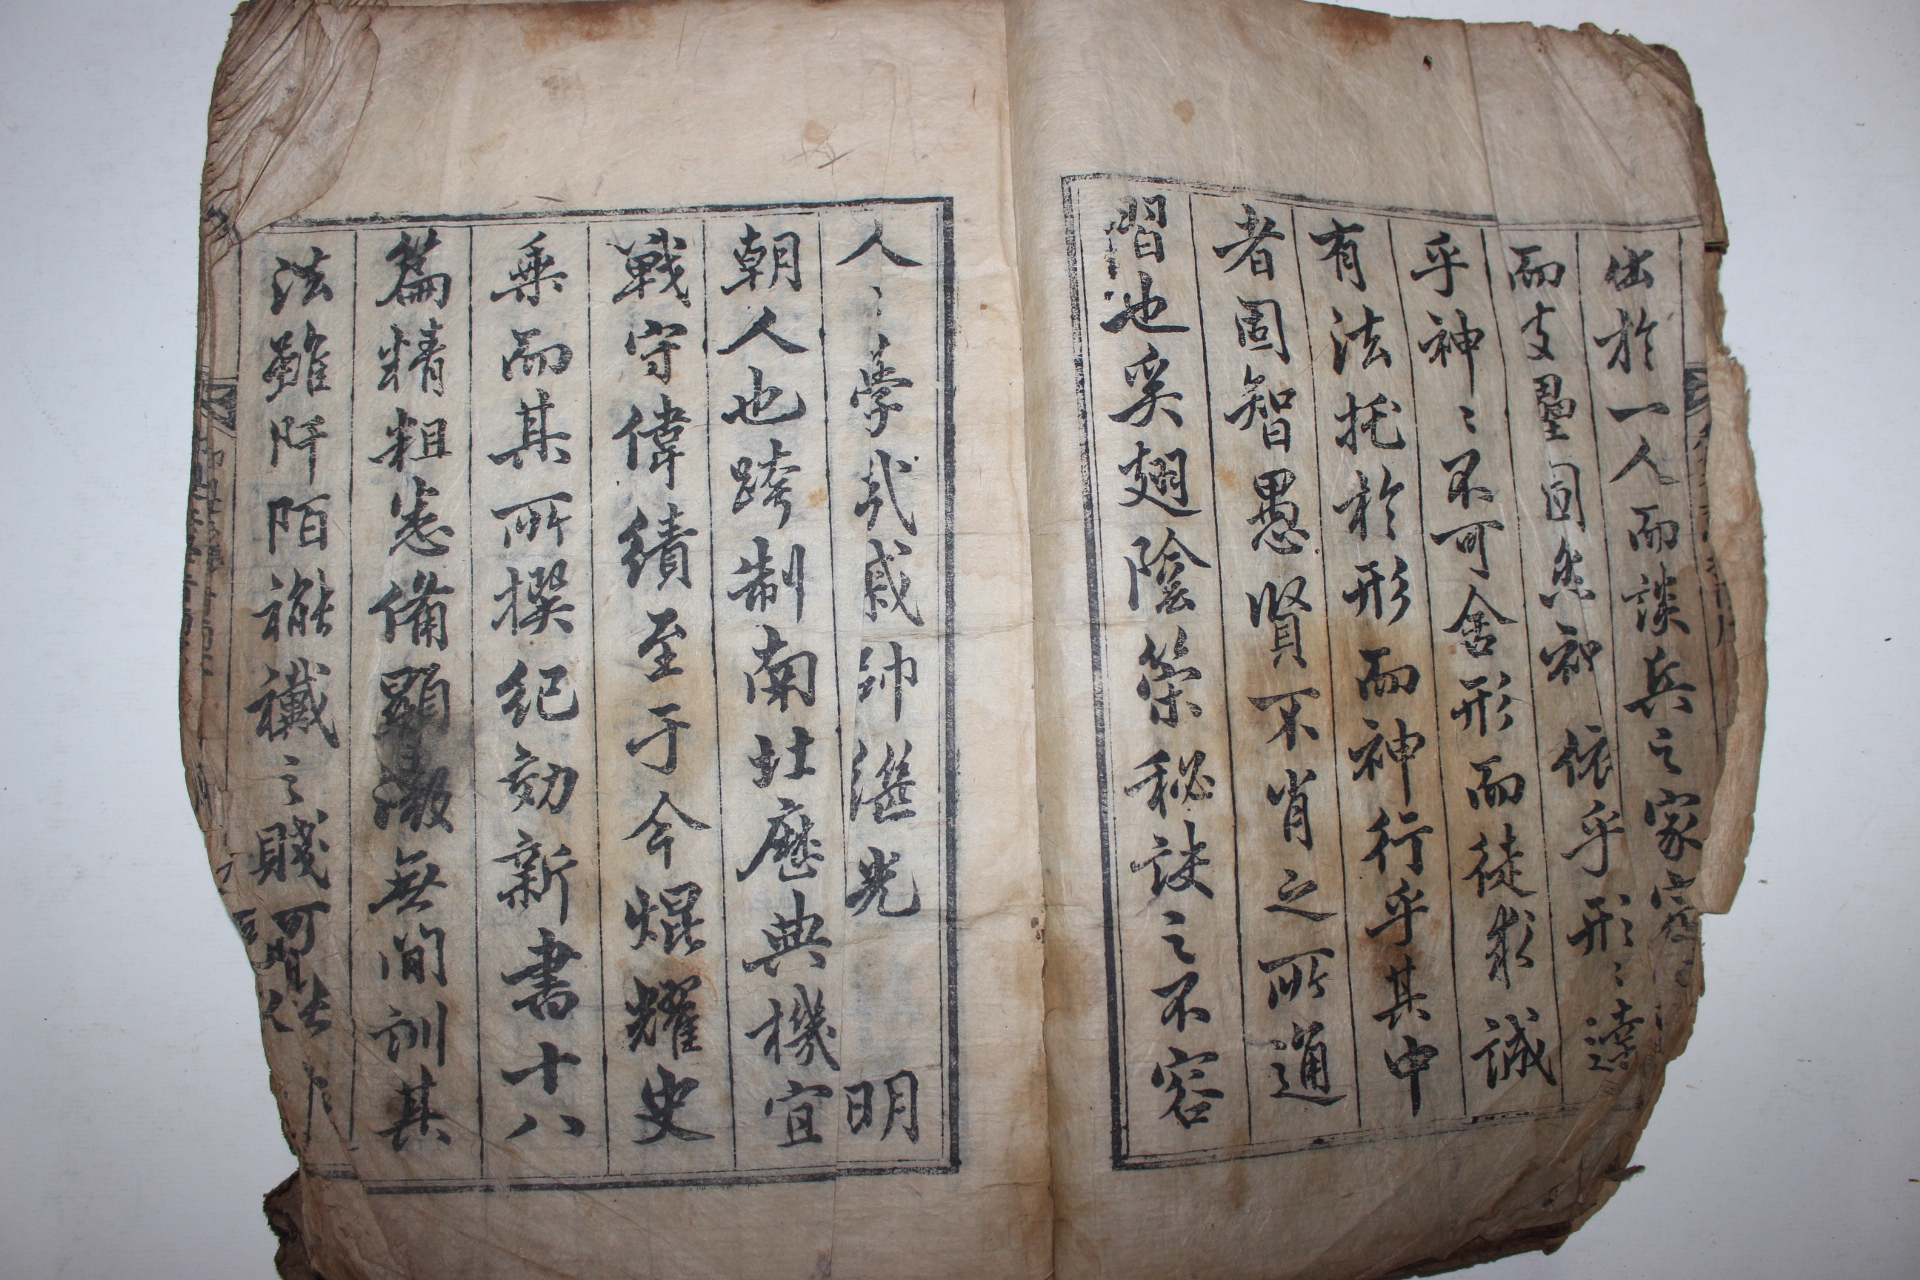 出於一人而談兵之家
而支壘固矣神依乎形〻達
乎神〻不可舍形而徒求誠
有法托於形而神行乎其中
者固智愚賢不肖之所通
習也奚翅陰策秘訣之不容
人〻學哉戚帥繼光 明
朝人也跨制南北歷典機宜
戰守偉績至于今焜耀史
乘而其所撰紀効新書十八
篇精粗悉備顯微無間訓其
法雖阡陌襁襶之賤可